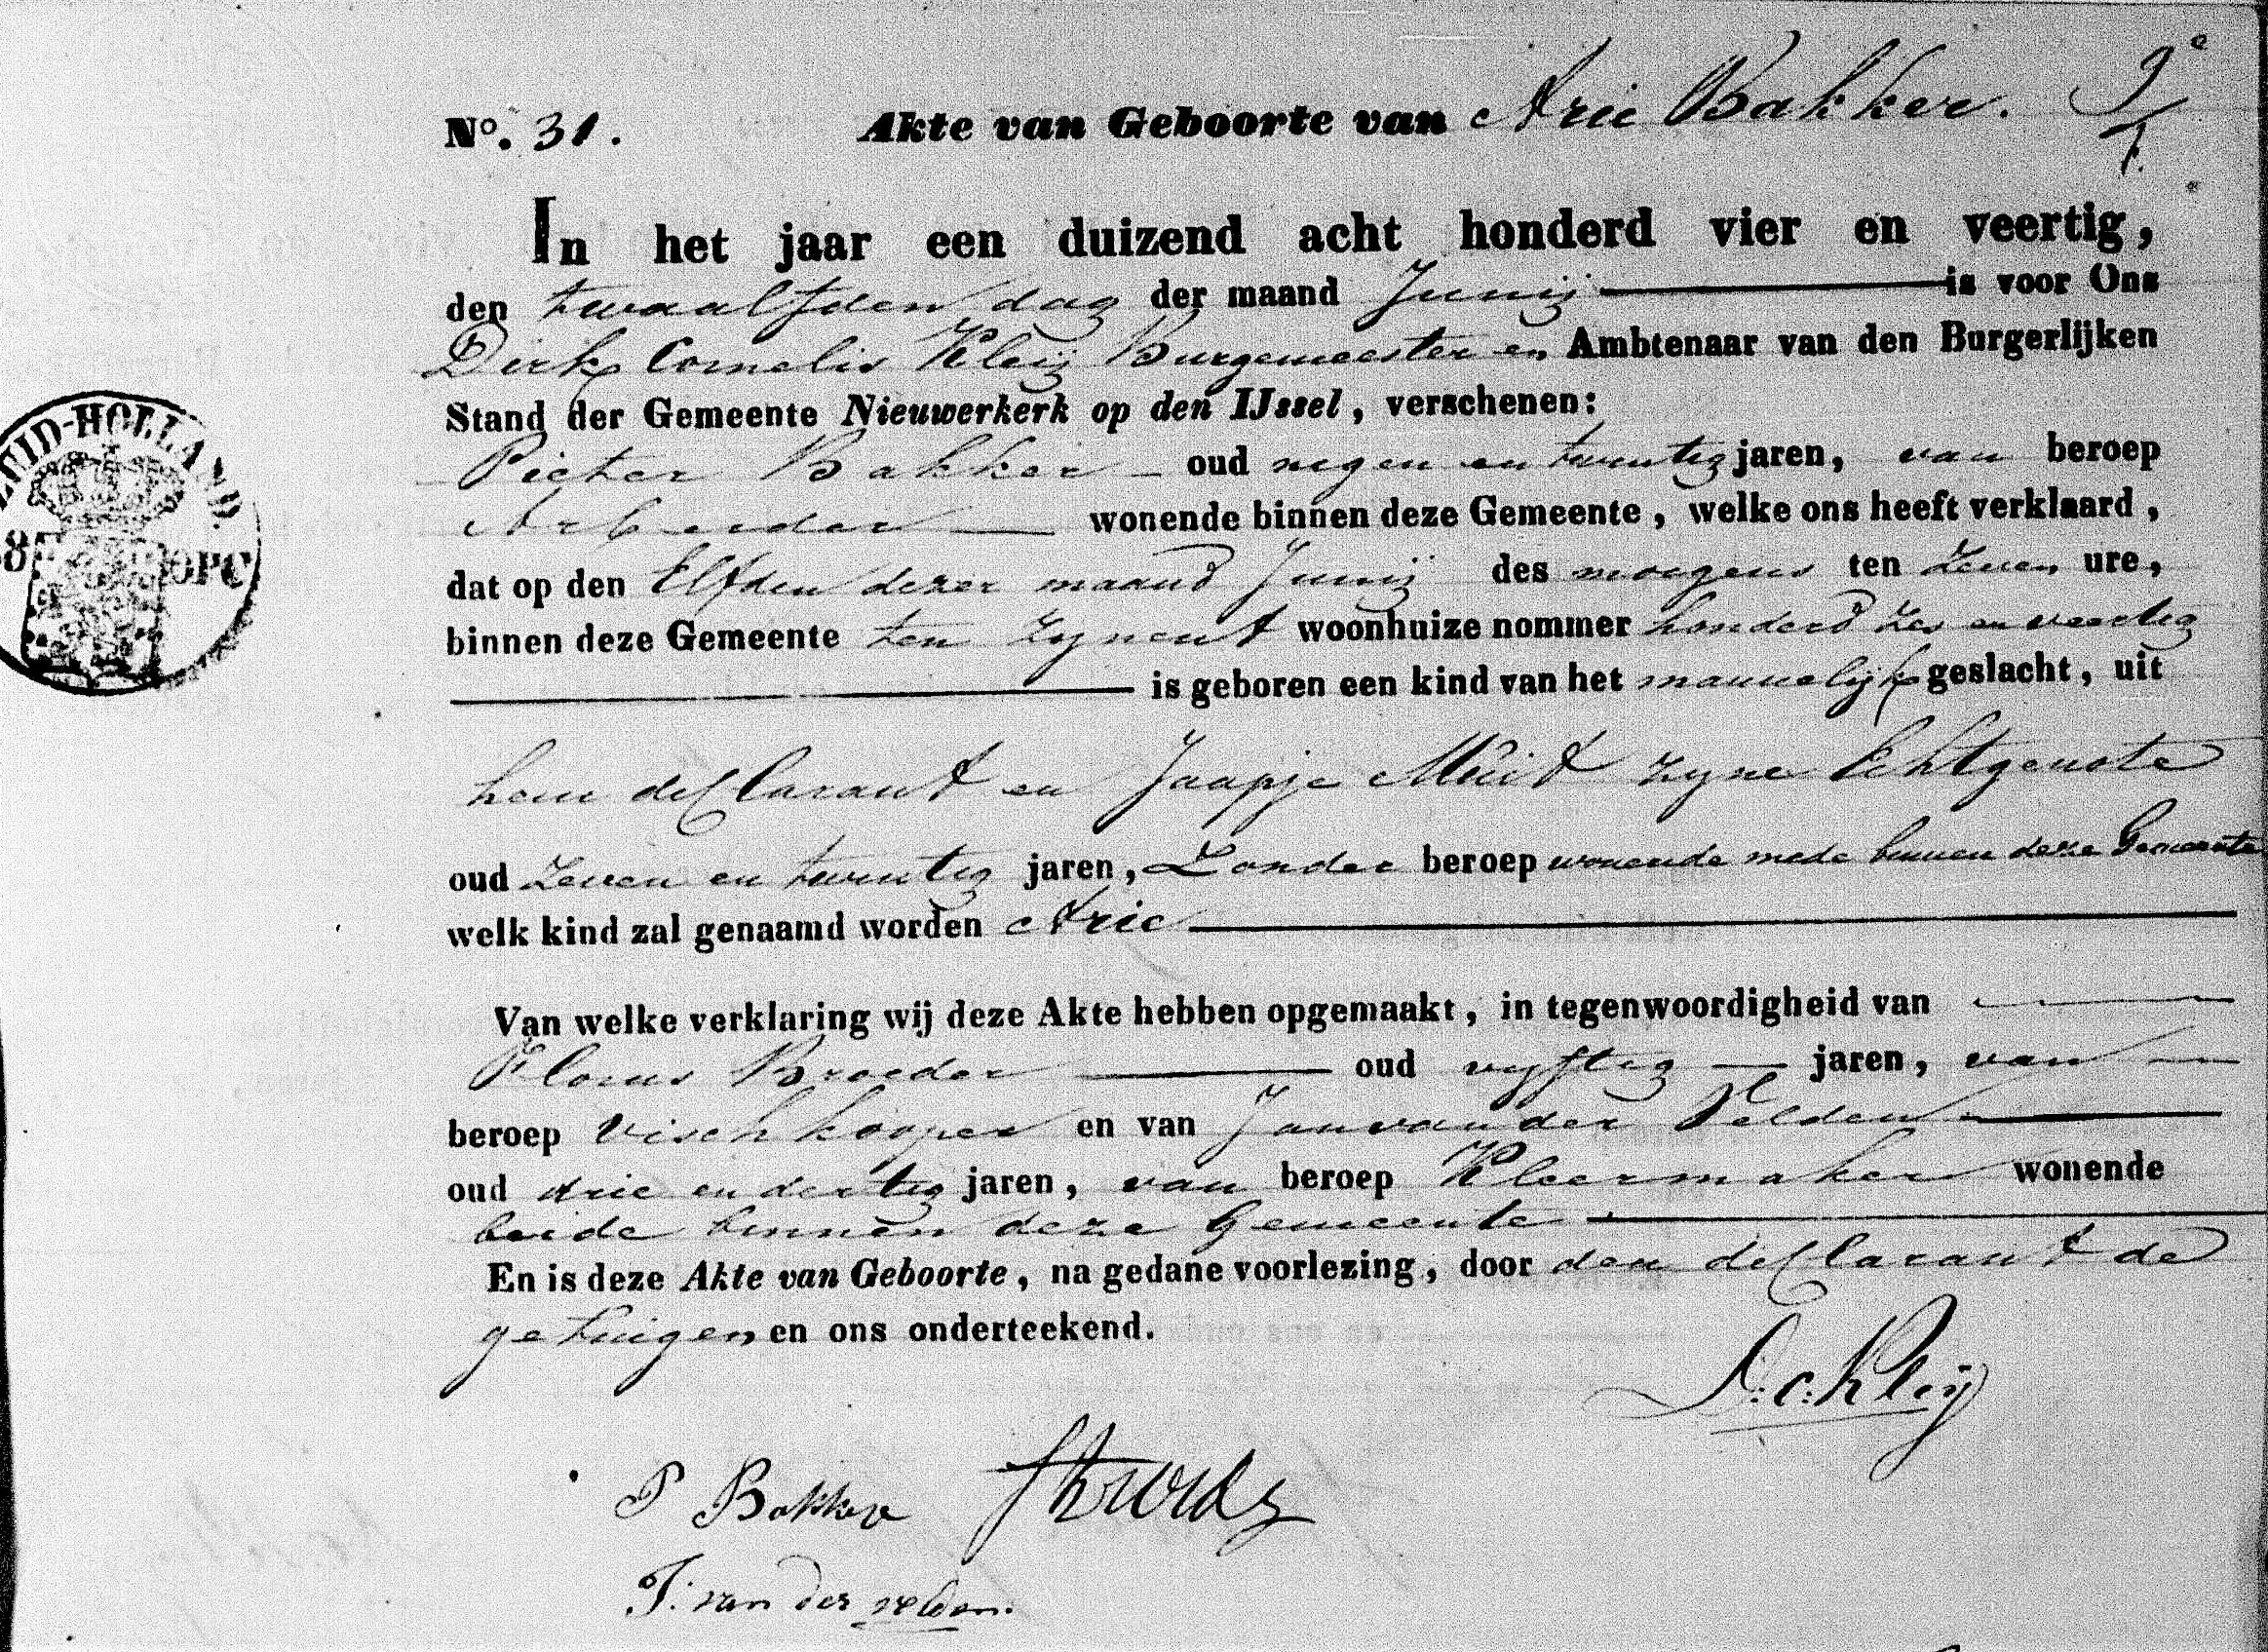 No. 31. Akte van Geboorte van Arie Bakker.
In het jaar een duizend acht honderd vier en veertig,
den twaalfden dag der maand Junij is voor Ons
Dirk Cornelis Kleij Burgemeester en Ambtenaar van den Burgerlijken
Stand der Gemeente Nieuwerkerk op den IJssel, verschenen:
ZUID-HOLLAND.
Pieter Bakker oud negen en twentig jaren, van beroep
Arbeider wonende binnen deze Gemeente, welke ons heeft verklaard,
OPC
dat op den Elfden dezer maand Junij des morgens ten zeven ure,
binnen deze Gemeente ten zynent woonhuize nommer honderd zes en veertig
is geboren een kind van het mannelijk geslacht, uit
hem declarant en Jaapje Muit zyne Echtgenote
oud zeven en twentig jaren, zonder beroep wonende mede binnen deze Gemeente
welk kind zal genaamd worden Arie
Van welke verklaring wij deze Akte hebben opgemaakt, in tegenwoordigheid van
Florus Broeder oud vyftig jaren, van
beroep vischkooper en van Jan van der Velden
oud drie en dertig jaren, van beroep Kleermaker wonende
beide binnen deze Gemeente
En is deze Akte van Geboorte, na gedane voorlezing, door den declarant de
getuigen en ons onderteekend.
D: C: Kleij
P Bakker
J. van der velden.